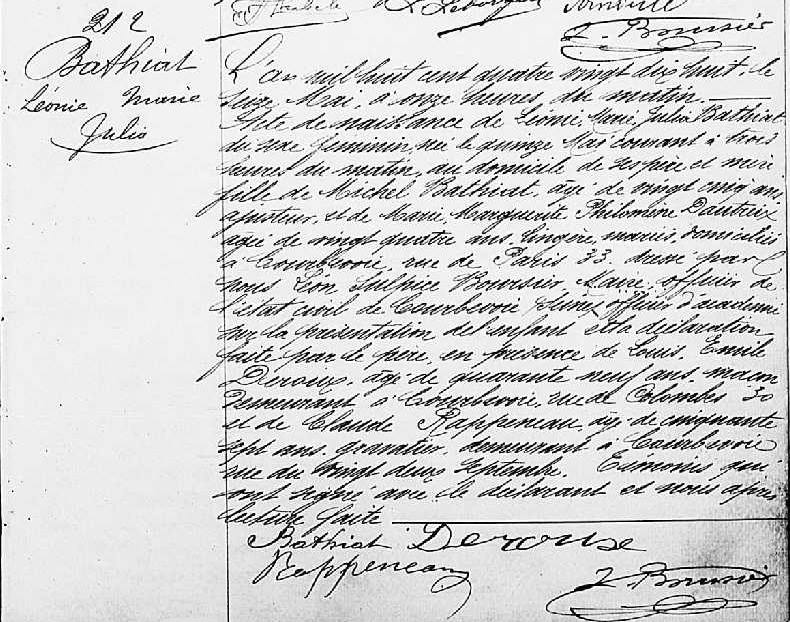 Leborgne
J. Boursier
212
Bathiat
Léonie Marie
Julia
L'an mil huit cent quatre vingt dix huit, le
seize Mai, à onze heures du matin
Acte de naissance de Léonie, Marie, Julia Bathiat
du sexe féminin, née le quinze Mai courant à trois
heures du matin, au domicile de ses père et mère
fille de Michel Bathiat, âgé de vingt cinq ans,
ajusteur, et de Marie, Marguerite Philomène Dautreix
âgée de vingt quatre ans, lingère, mariés, domiciliés
à Courbevoie, rue de Paris 33. dressé par
nous Léon Sulpice Boursier, Maire, officier de
l'état civil de Courbevoie (Seine) officier d'académie
sur la présentation de l'enfant et la déclaration
faite par le père, en présence de Louis, Emile
Deroux, âgé de quarante neuf ans, maçon
demeurant à Courbevoie, rue de Colombes 30
et de Claude Rappeneau, âgé de cinquante
sept ans, gravatier, demeurant à Courbevoie
rue du vingt deux Septembre. Témoins qui
ont signé avec le déclarant et nous après
lecture faite
Bathiat Deroux
Rappeneau
J. Boursier